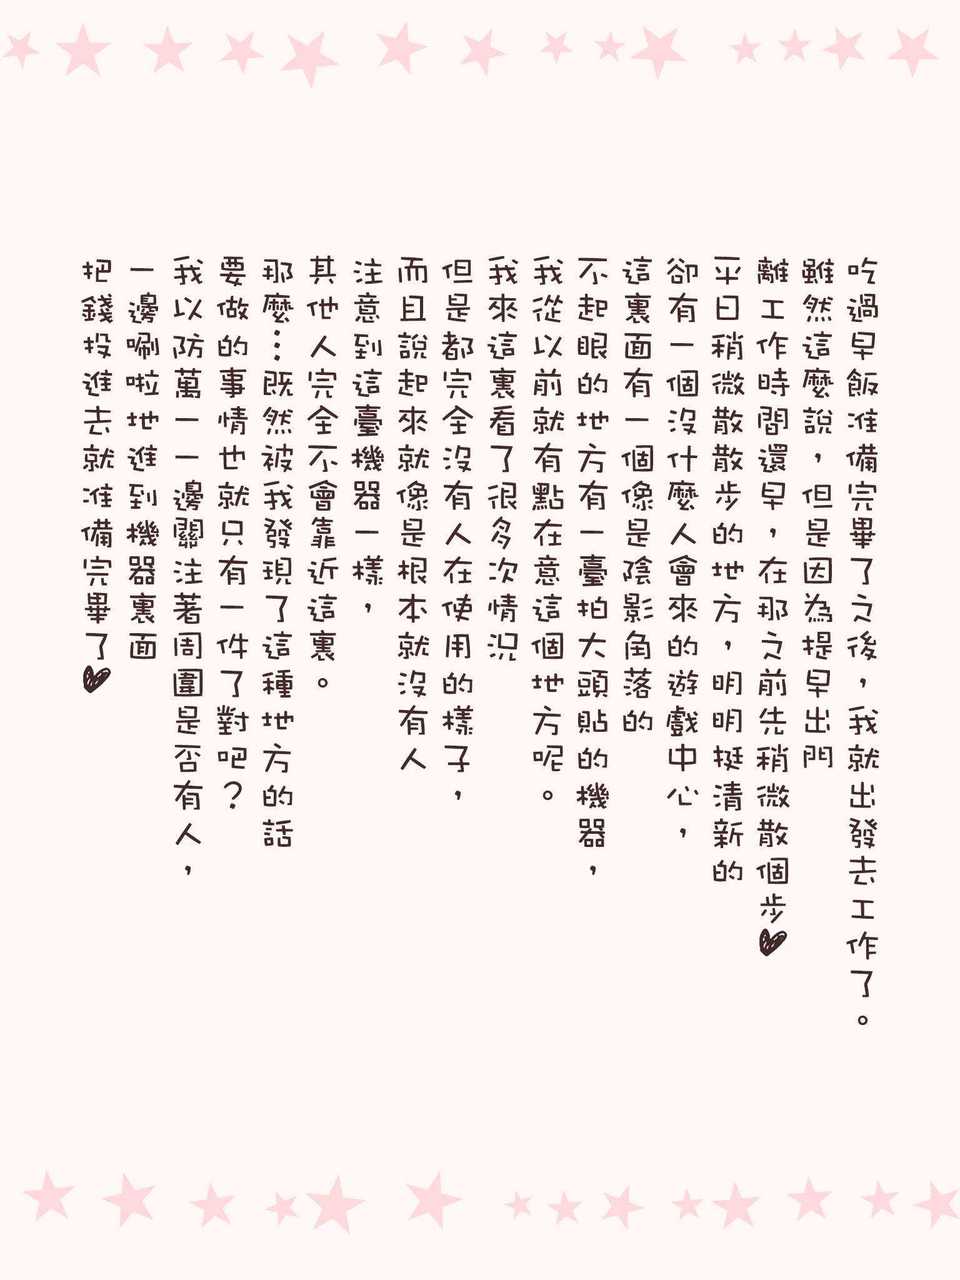 吃過早飯准備完畢了之後，我就出發去工作了。
雖然這麼說，但是因為提早出門
離工作時間還早，在那之前先稍微散個步♥
平日稍微散散步的地方，明明挺清新的
卻有一個沒什麼人會來的遊戲中心，
這裏面有一個像是陰影角落的
不起眼的地方有一臺拍大頭貼的機器，
我從以前就有點在意這個地方呢。
我來這裏看了很多次情況
但是都完全沒有人在使用的樣子，
而且說起來就像是根本就沒有人
注意到這臺機器一樣，
其他人完全不會靠近這裏。
那麼…既然被我發現了這種地方的話
要做的事情也就只有一件了對吧？
我以防萬一一邊關注著周圍是否有人，
一邊唰啦地進到機器裏面
把錢投進去就准備完畢了♥